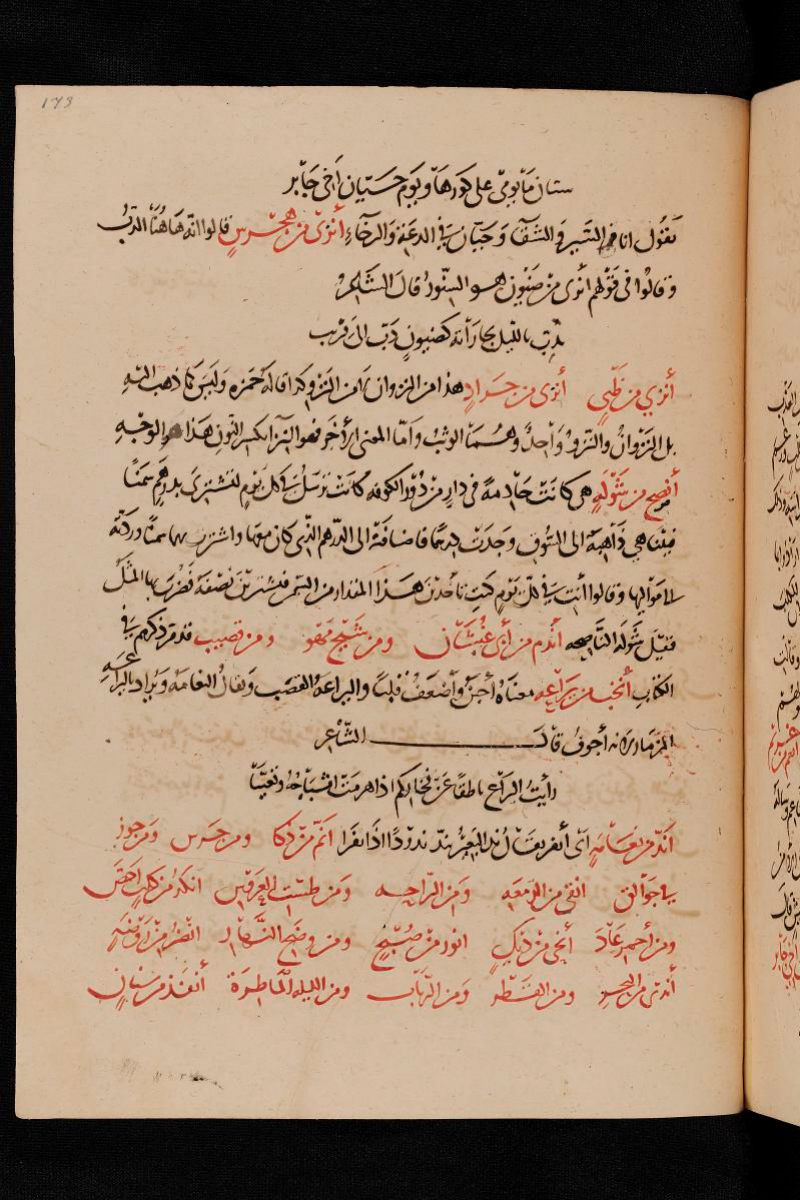 ١٧٣
شتان ما يومي على كورها ويوم حيان أخي جابر
يقول انا في السير والشقا وحيان في الدعة والرخاء أنزى من هجرس قالوا انه هاهنا الدب
وقالوا في قولهم أنزى من ضيون هو السنور قال الشاعر
يدب بالليل لجاراته كضيون دب الى قرنب
أنزى من ظبي أنزى من جراد هذا من النزوان لا من النزو كذا قاله حمزه وليس كما ذهب اليه
بل النزوان والنزو واحد وهما الوثب وأما المعنى الآخر فهو النزا بكسر النون هذا هو الوجه
أنصح من شوله هي كانت خادمة في دار من دور الكوفه كانت ترسل في كل يوم لتشترى بدرهم سمنا
فبينا هي ذاهبة الى السوق وجدت درهما فاضافته الى الدرهم الذي كان معها واشترت بهما سمنا وردته
الى مواليها وقالوا أنت في كل يوم كنت تأخذين هذا المقدار من السمن فتسترقين نصفه فضرب بها المثل
فقيل شولة الناصحه أندم من أبي غبشان ومن شيخ مهو ومن قضيب قد مر ذكرهم في
الكتاب أنخب من يراعه معناه أجبن وأضعف قلبا واليراعة القصب ويقال النعامه ويراد باليراعه
المزمار لانه أجوف قالـ الشاعر
أند من نعامه اى أنفر يقال ند البعير يند ندودا اذا نفر أنم من ذكا ومن جرس ومن جوز
في جوالق أنقى من الدمعه ومن الراحه ومن طست العروس انكد من كلب اجص
ومن أحمر عاد أنخى من ديك انور من صبح ومن وضح النهار انضر من روضة
أندى من البحر ومن القطر ومن الرباب ومن الليله الماطرة أنفذ من سنان